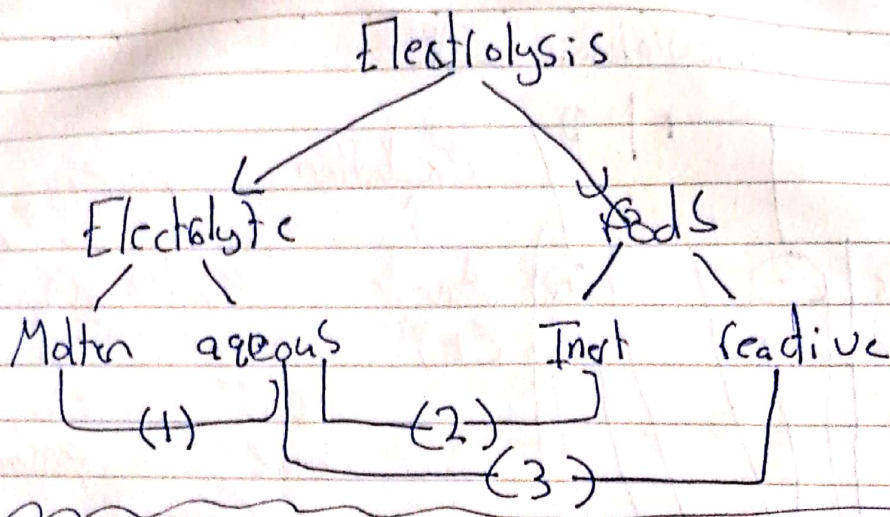 Electrolysis
Electolyte Rods
Molten aqeous Inert reactive
(1) (2)
(3)